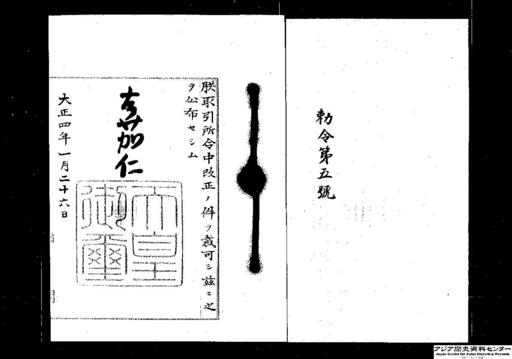 勅令第五號
朕取引所令中改正ノ件ヲ裁可シ茲ニ之
ヲ公布セシム
嘉仁
天皇
御璽
大正四年一月二十六日
アジア歴史資料センター
Japan Center for Asian Historical Records